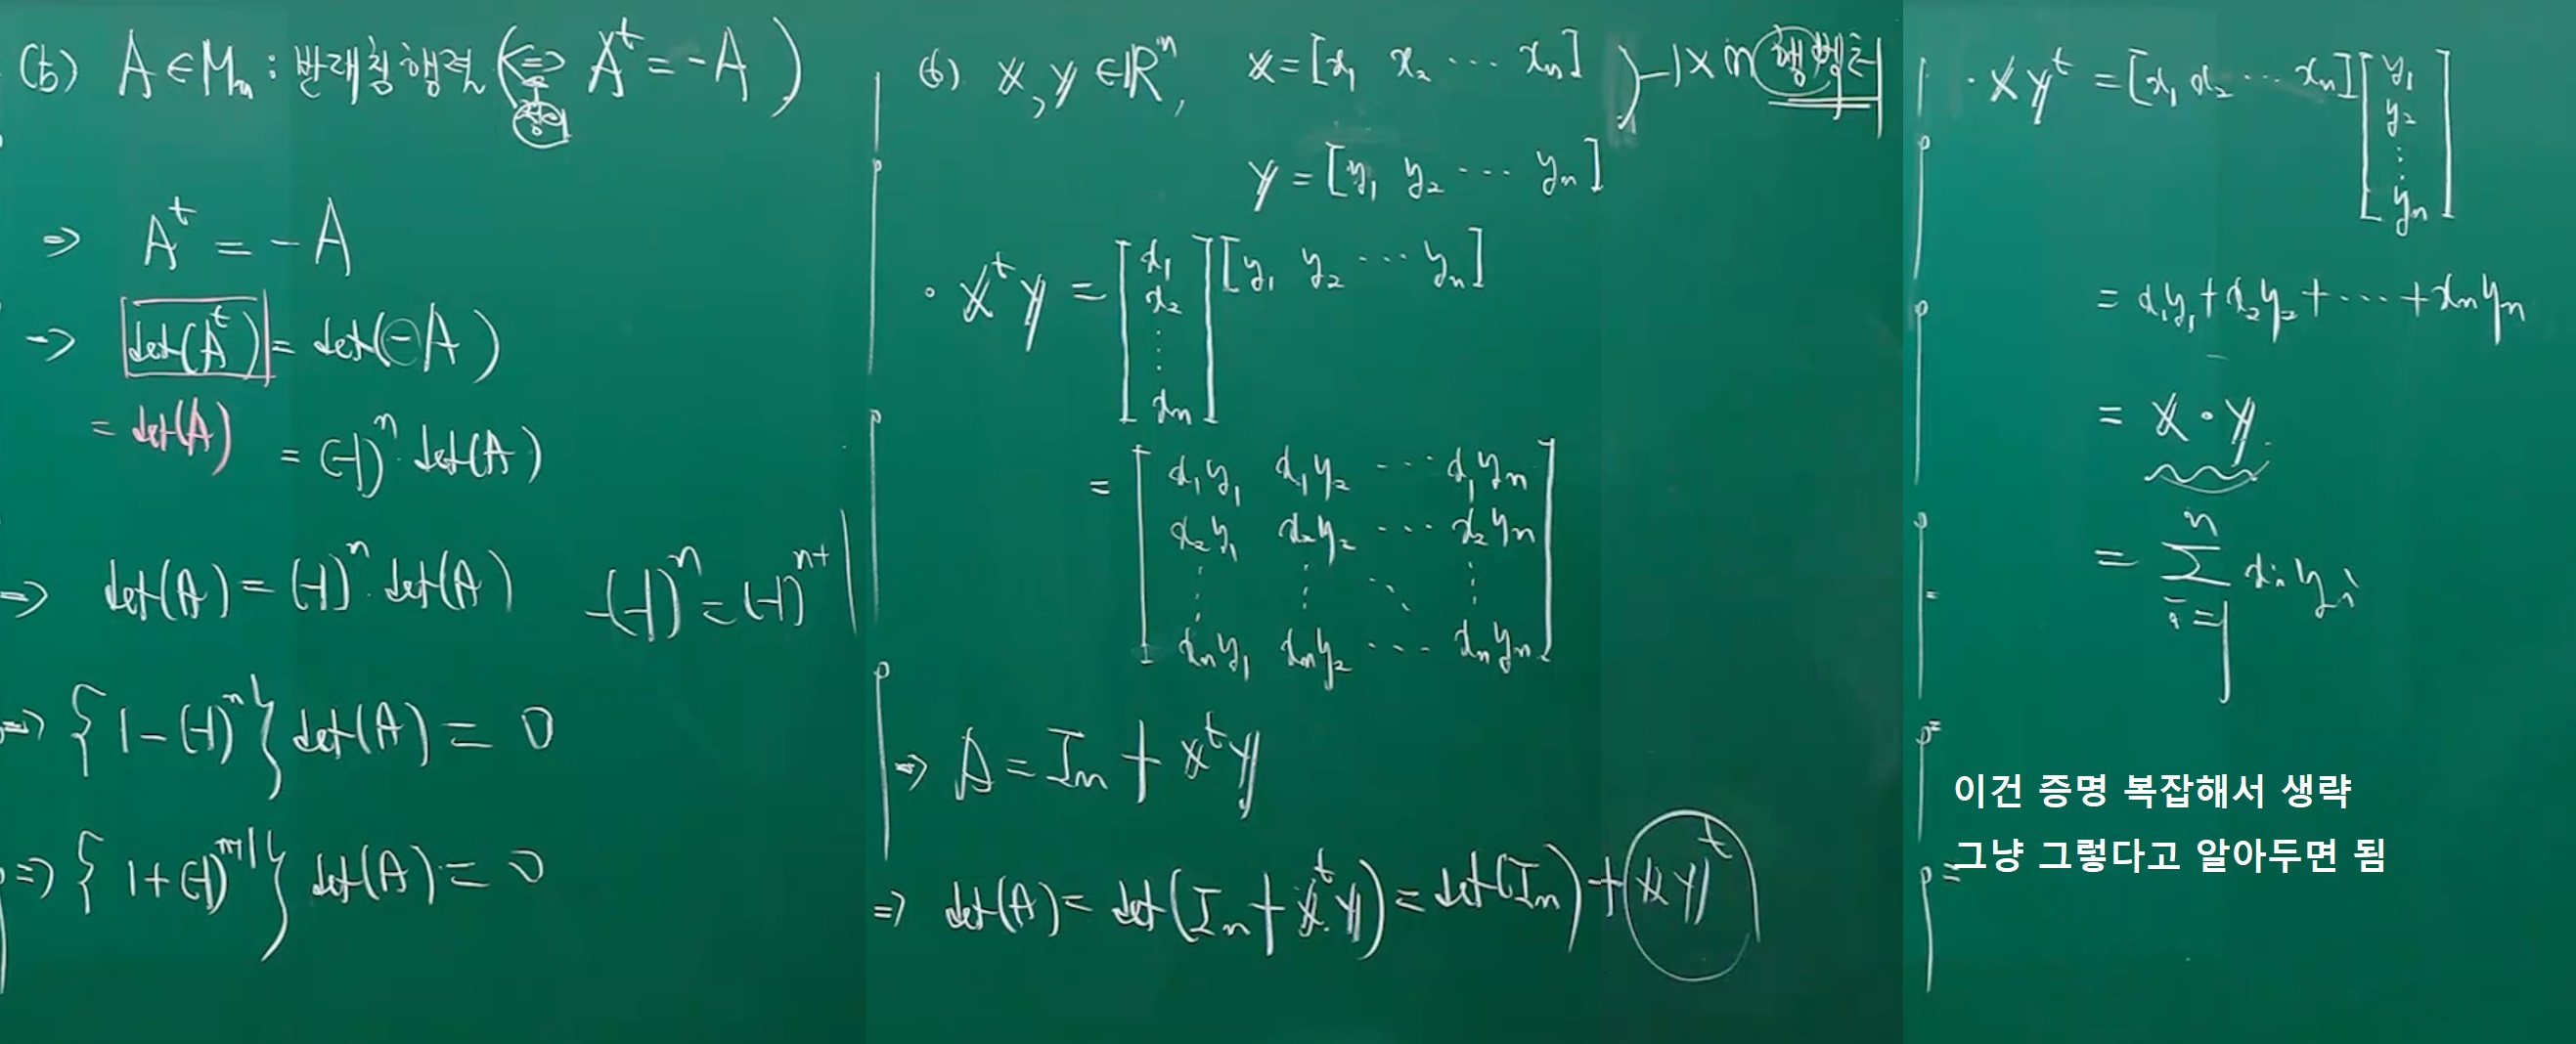 (5) A ∈ Mₙ : 반대칭행렬 (<=> Aᵗ = -A)
정의
=> Aᵗ = -A
=> det(Aᵗ) = det(-A)
= det(A) = (-1)ⁿ·det(A)
=> det(A) = (-1)ⁿ·det(A) -(-1)ⁿ = (-1)ⁿ⁺¹
=> {1-(-1)ⁿ} det(A) = 0
=> {1+(-1)ⁿ⁺¹} det(A) = 0
(6) x, y ∈ ℝⁿ, x = [x₁ x₂ ··· xₙ] ) - 1×n 행벡터
y = [y₁ y₂ ··· yₙ]
· xᵗy = [x₁ x₂ ⋮ xₙ] [y₁ y₂ ··· yₙ]
= [x₁y₁ x₁y₂ ··· x₁yₙ
x₂y₁ x₂y₂ ··· x₂yₙ
⋮ ⋮ ⋱ ⋮
xₙy₁ xₙy₂ ··· xₙyₙ]
=> A = Iₙ + xᵗy
=> det(A) = det(Iₙ + xᵗy) = det(Iₙ) + xyᵗ
· xyᵗ = [x₁ x₂ ··· xₙ] [y₁ y₂ ⋮ yₙ]
= x₁y₁ + x₂y₂ + ··· + xₙyₙ
= x · y
= Σⁿᵢ₌₁ xᵢyᵢ
이건 증명 복잡해서 생략
그냥 그렇다고 알아두면 됨